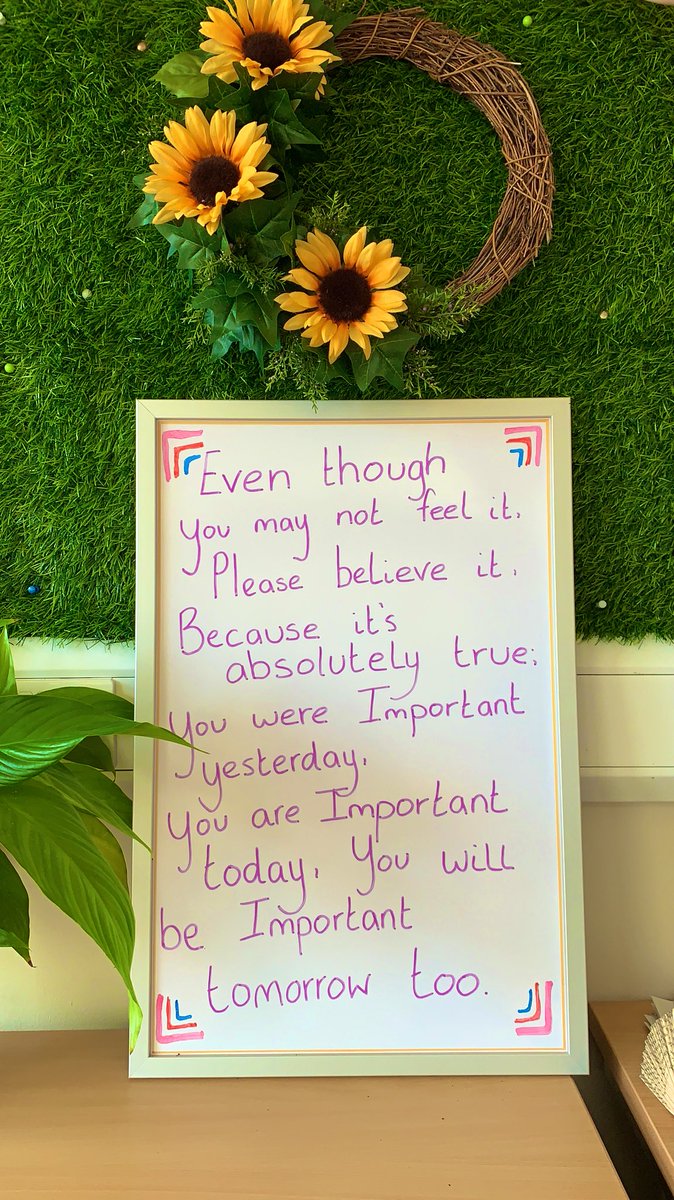 Even though
you may not feel it.
Please believe it.
Because it's
absolutely true:
You were Important
yesterday.
You are Important
today. You will
be Important
tomorrow too.